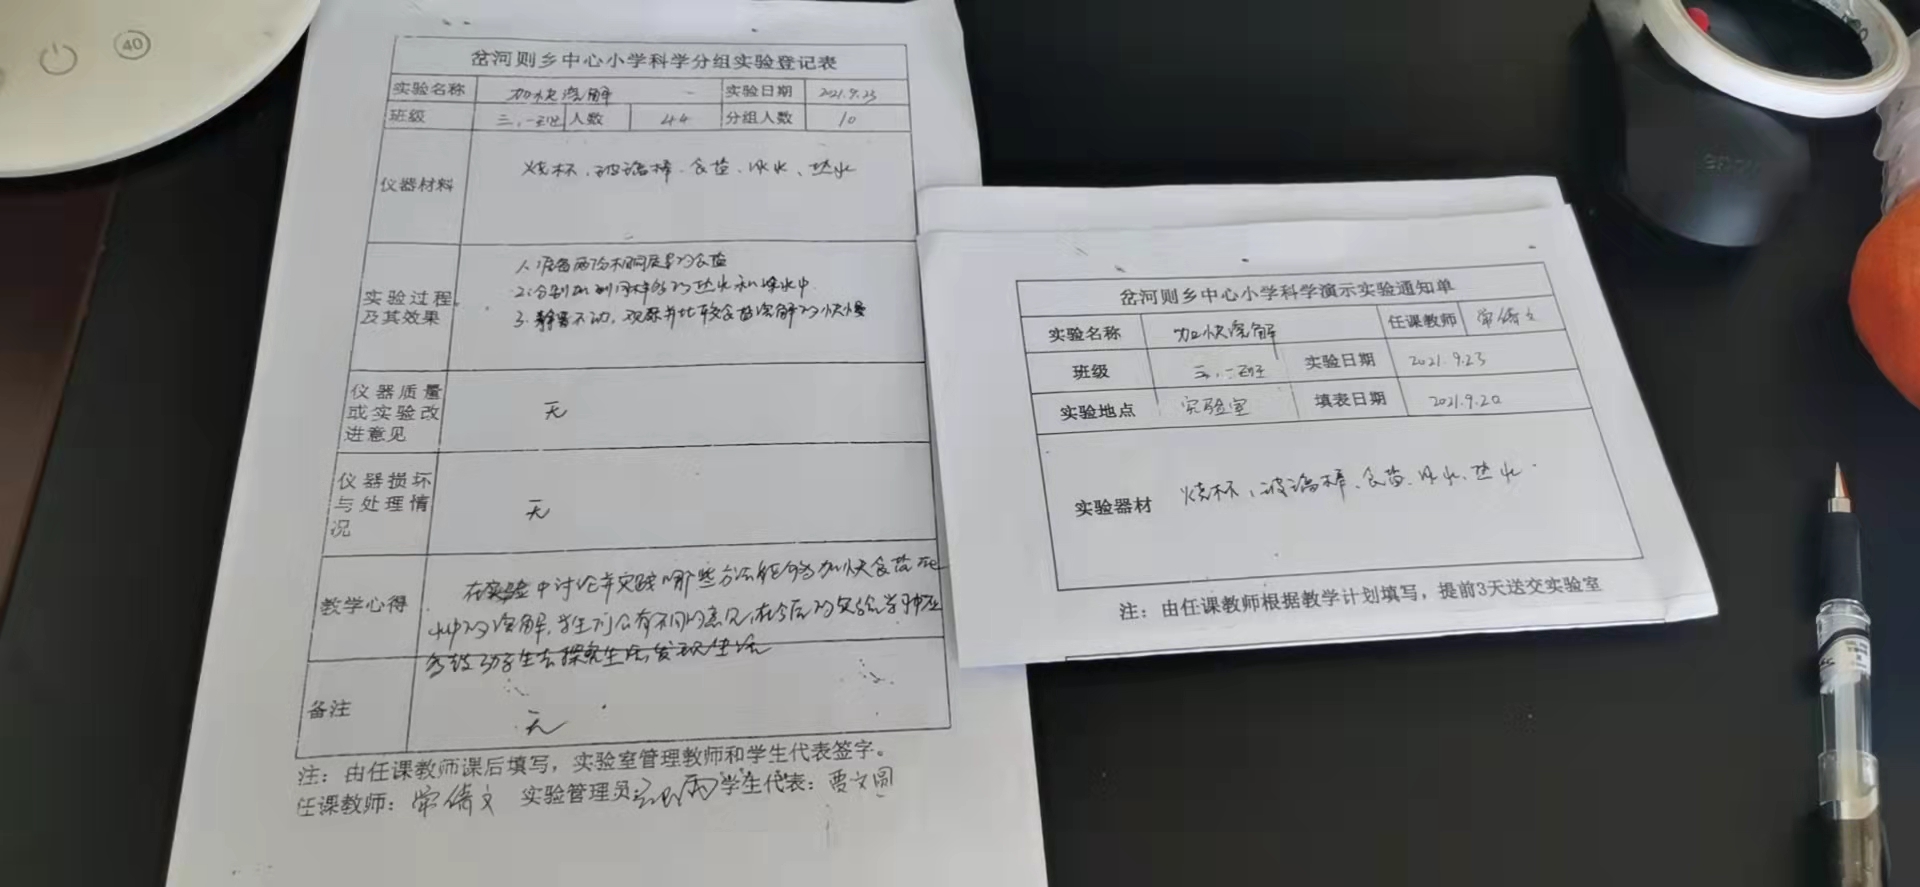 40
岔河则乡中心小学科学分组实验登记表
实验名称 加快溶解 实验日期 2021.9.23
班级 三、一班 人数 44 分组人数 10
仪器材料 烧杯、玻璃棒、食盐、冰水、热水
实验过程及其效果
1、准备两份不同质量的食盐
2、分别加到同样多的热水和冰水中
3、静置不动，观察并比较食盐溶解的快慢
仪器质量或实验改进意见 无
仪器损坏与处理情况 无
教学心得 在实验中讨论并实践哪些方法能够加快食盐在
水中的溶解，学生们会有不同的意见，在今后的实验学习中应
多鼓动学生去探究生活，发现生活
备注 无
注：由任课教师课后填写，实验室管理教师和学生代表签字。
任课教师：常倩文 实验管理员： 学生代表：贾文圆
岔河则乡中心小学科学演示实验通知单
实验名称 加快溶解 任课教师 常倩文
班级 三、一班 实验日期 2021.9.23
实验地点 实验室 填表日期 2021.9.20
实验器材 烧杯、玻璃棒、食盐、冰水、热水
注：由任课教师根据教学计划填写，提前3天送交实验室